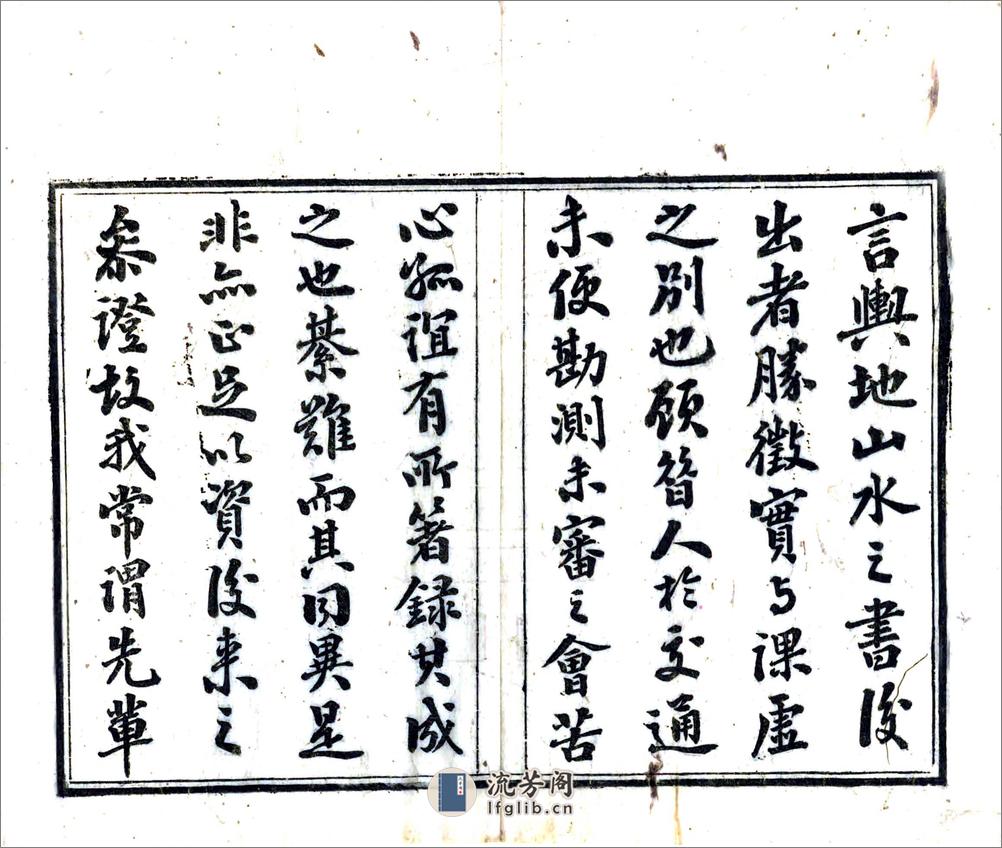 言輿地山水之書後
出者勝徵實与課虛
之別也顧昔人於交通
未便勘測未審之會苦
心孤詣有所箸錄其成
之也綦難而其同異是
非亦正足以資後來之
參證故我常謂先輩
流芳阁
lfglib.cn